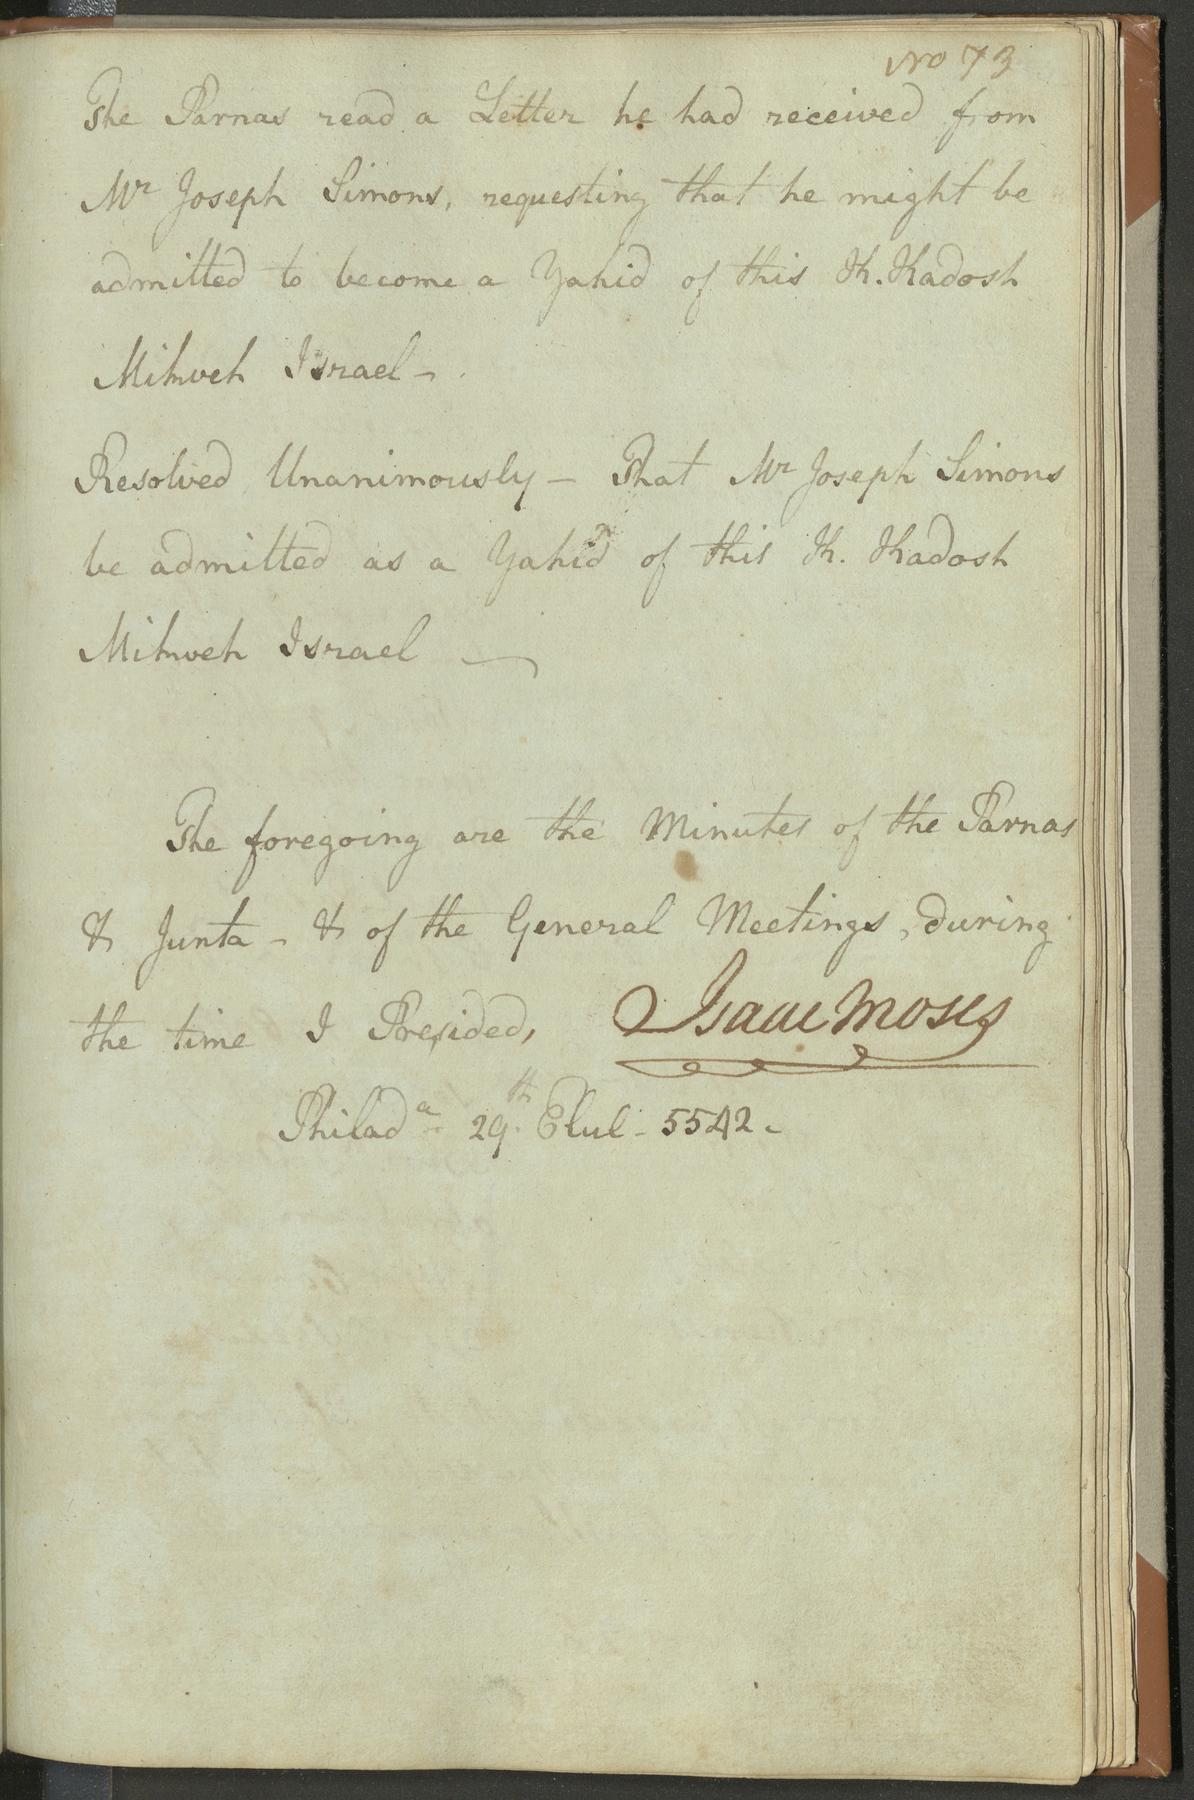 No 73
The Parnas read a Letter he had received from
Mr Joseph Simons, requesting that he might be
admitted to become a Yahid of this K. Kadosh
Mikveh Israel -
Resolved Unanimously - That Mr Joseph Simons
be admitted as a Yahid of this K. Kadosh
Mikveh Israel —
The foregoing are the Minutes of the Parnas
& Junta - & of the General Meetings, during
the time I Presided, Isaac Moses
Philada 29th Elul - 5542 -